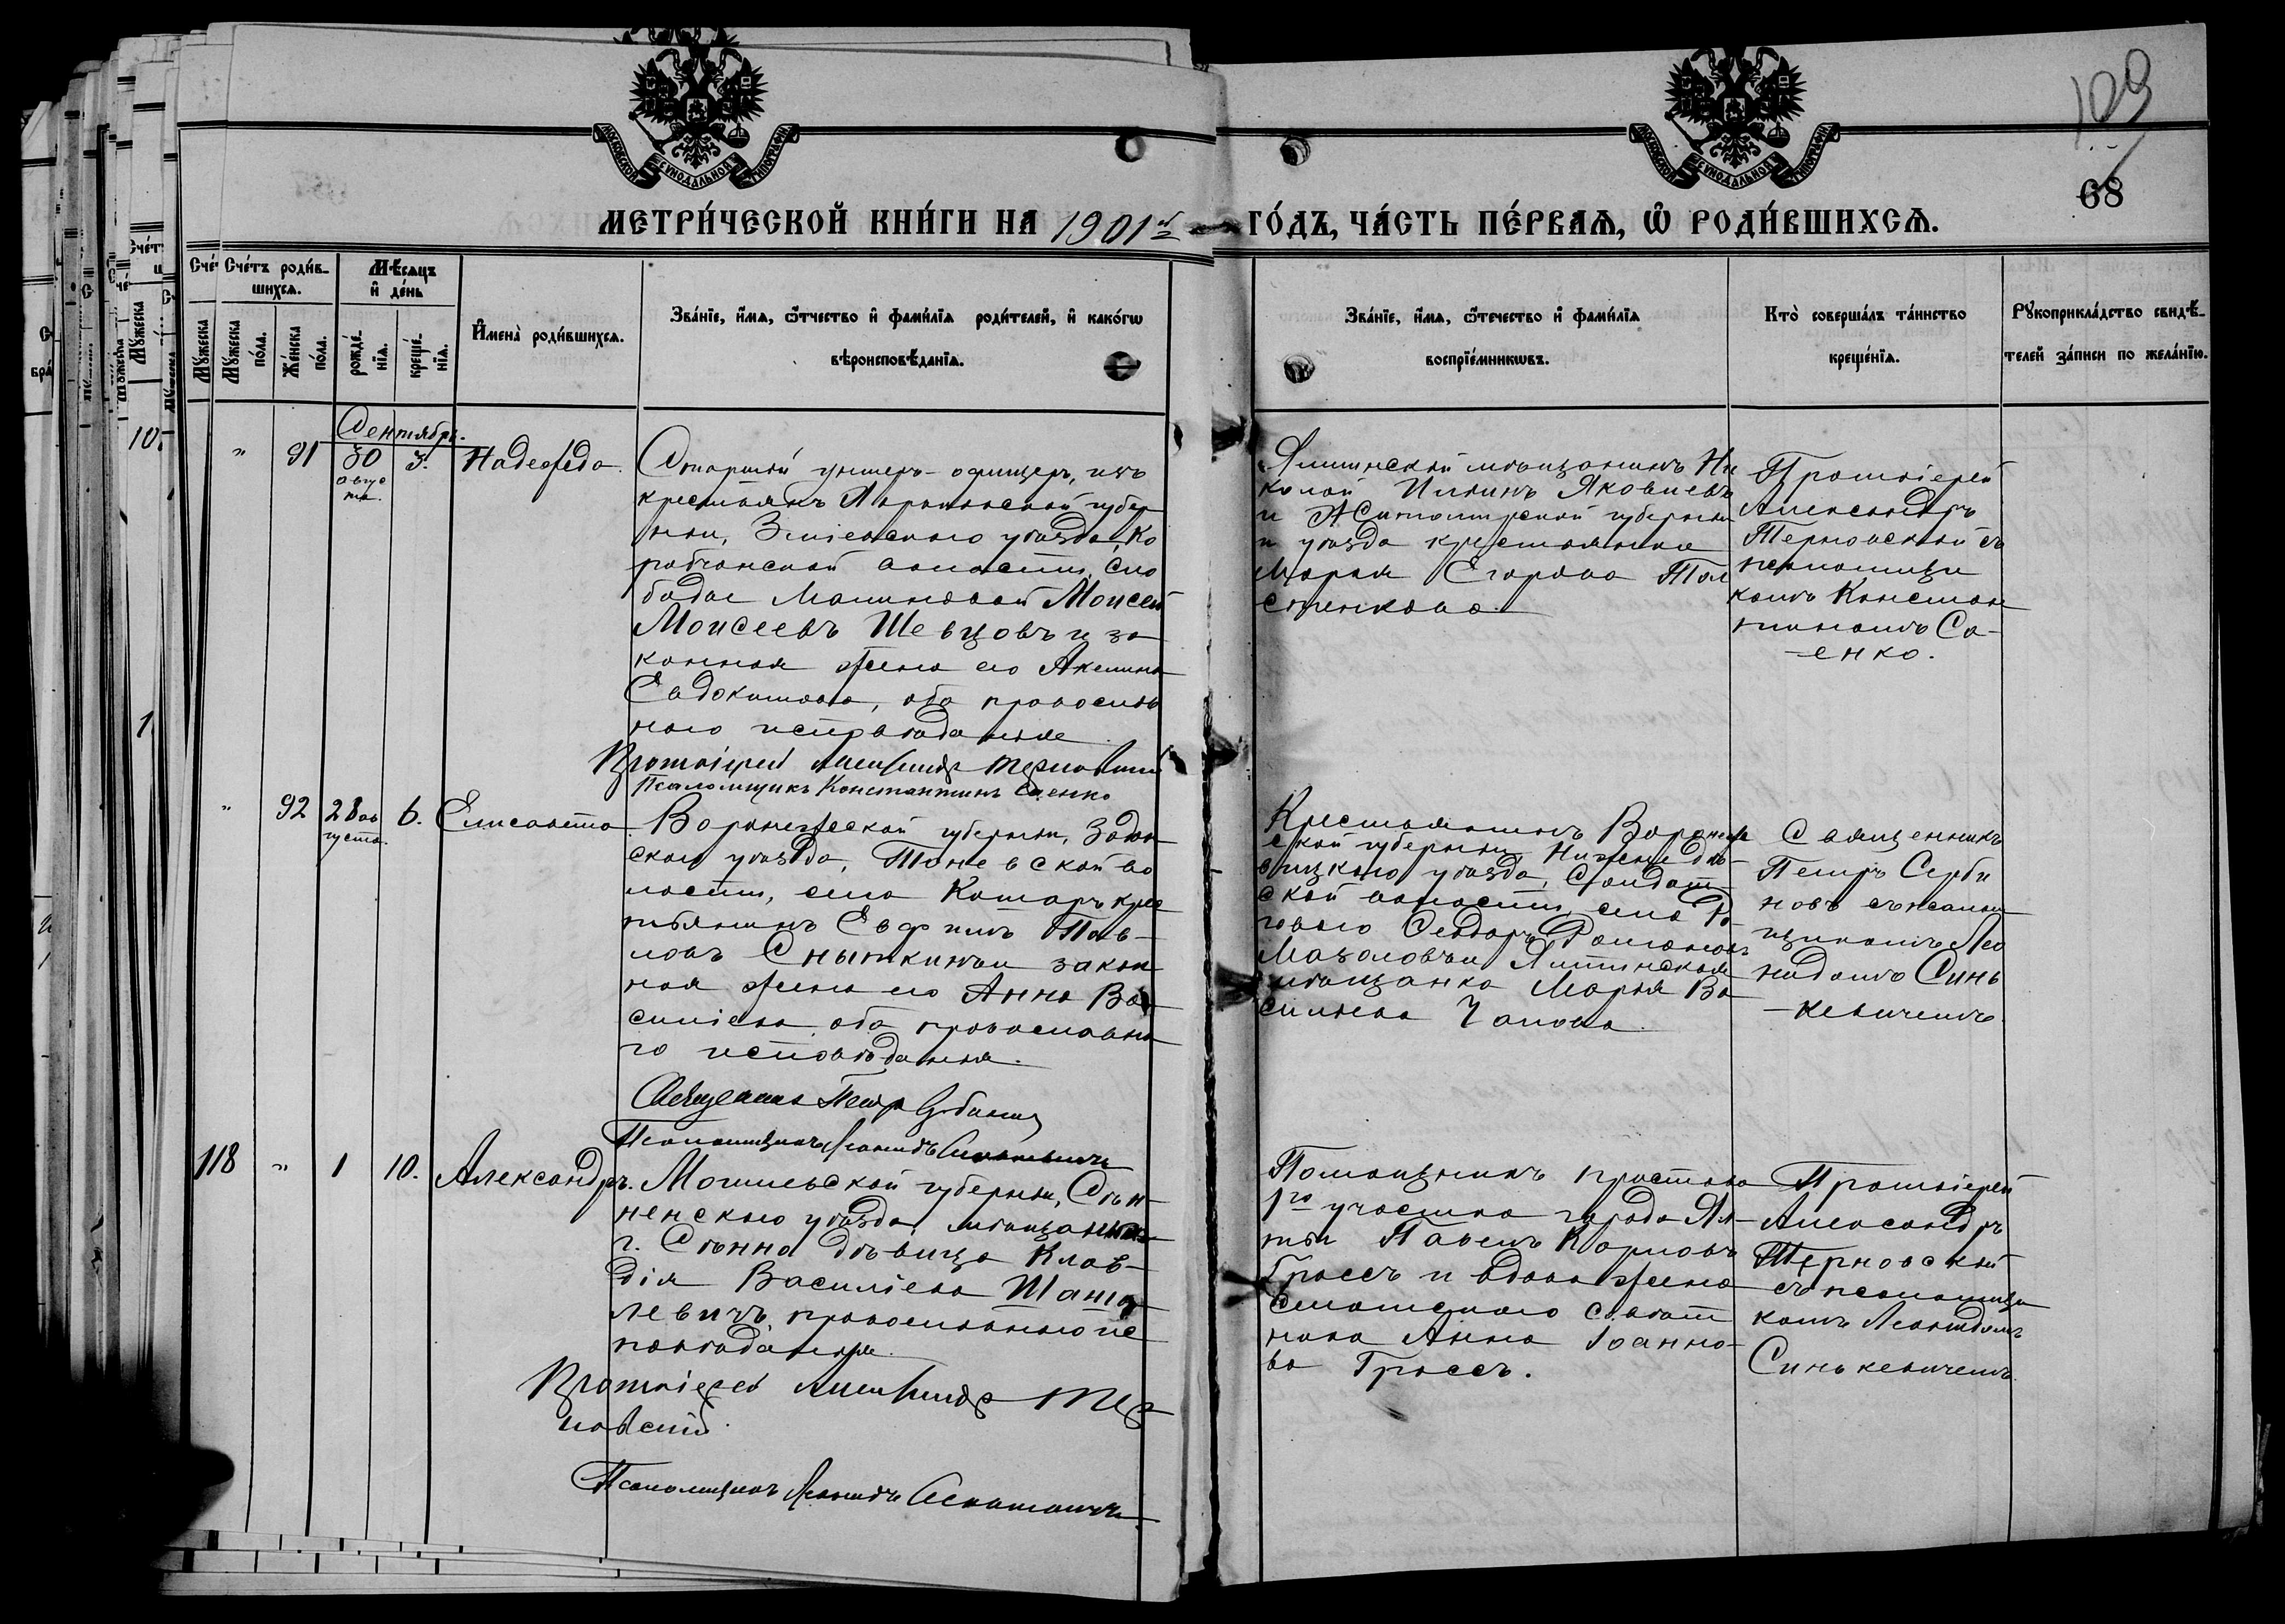 МОСКОВСКОЙ СѴНОДАЛЬНОЙ ТИПОГРАФІИ
МОСКОВСКОЙ СѴНОДАЛЬНОЙ ТИПОГРАФІИ
109
68
МЕТРИ́ЧЕСКОЙ КНИ́ГИ НА 1901й ГО́ДЪ, ЧА́СТЬ ПЕ́РВАѦ, Ѡ РОДИ́ВШИХСѦ.
Сче́тъ роди́в-
шихсѧ.
Мꙋ́жеска
по́ла.
Же́нска
по́ла.
Мѣ́сѧцъ
и҆ де́нь
рожде́-
нїѧ.
креще́-
нїѧ.
И҆мена̀ роди́вшихсѧ.
Зва́нїе, и҆́мѧ, ѻ҆́тчество и҆ фами́лїѧ роди́телей, и҆ како́гѡ
вѣроисповѣ́данїѧ.
Зва́нїе, и҆́мѧ, ѻ҆те́чество и҆ фами́лїѧ
воспрїе́мникѡвъ.
Кто̀ соверша́лъ та́инство
креще́нїѧ.
Рꙋкоприкла́дство свидѣ́-
телей за́писи по жела́нїю.
Сентябрь.
" 91 30 авгус
та. 3. Надежда.
Старшій унтеръ-офицеръ, изъ
крестьянъ Харьковской губер
ніи, Зміевскаго уѣзда, Ко
робчанской волости, сло
боды Малиновой Моисей
Моисеевъ Шевцовъ и за
конная жена его Акилина
Евдокимова, оба православ
наго исповѣданія
Протоіерей Александр Терновскій
Псаломщикъ Константинъ Саенко
Ялтинскій мѣщанинъ Ни
колай Илiинъ Яковлевъ
и Житомирской губерніи
и уѣзда крестьянка
Марія Егорова Тол
стенкова.
Протоіерей
Александръ
Терновскій съ
псаломщи
комъ Констан
тиномъ Са-
енко.
" 92 28 ав
густа. 6. Елисавета.
Воронежской губерніи, Задон
скаго уѣзда, Тоневской во
лости, села Котаръ крес
тьянинъ Евфимъ Пав-
ловъ Сныткинъ и закон
ная жена его Анна Ва
силіева, оба православна
го исповѣданія.
Священникъ Петръ Сербиновъ
Псаломщикъ Леонидъ Синькевичъ
Крестьянинъ Воронеж
ской губерніи Нижнедѣ-
вицкаго уѣзда, Солдат
ской волости, села
Ѳеодоръ Романовъ
и Ялтинская
мѣщанка Марія Ва
сильева Чапова.
Священникъ
Петръ Серби
новъ съ псалом
щикомъ Лео
нидомъ Синь
кевичемъ.
118 " 1 10. Александръ.
Могилевской губерніи, Сѣн-
ненскаго уѣзда, мѣщанка
г. Сѣнно дѣвица Клав-
дія Василіева Шанта
левичъ, православнаго ис
повѣданія.
Протоіерей Александръ Тер
новскій.
Псаломщикъ Леонидъ Синькевичъ.
Помощникъ пристава
1го участка города Ял-
ты Павелъ Карловъ
Гроссъ и вдова жена
статскаго совѣт
ника Анна Іоанно-
ва Гроссъ.
Протоіерей
Александръ
Терновскій
съ псаломщи
комъ Леонидомъ
Синькевичемъ.